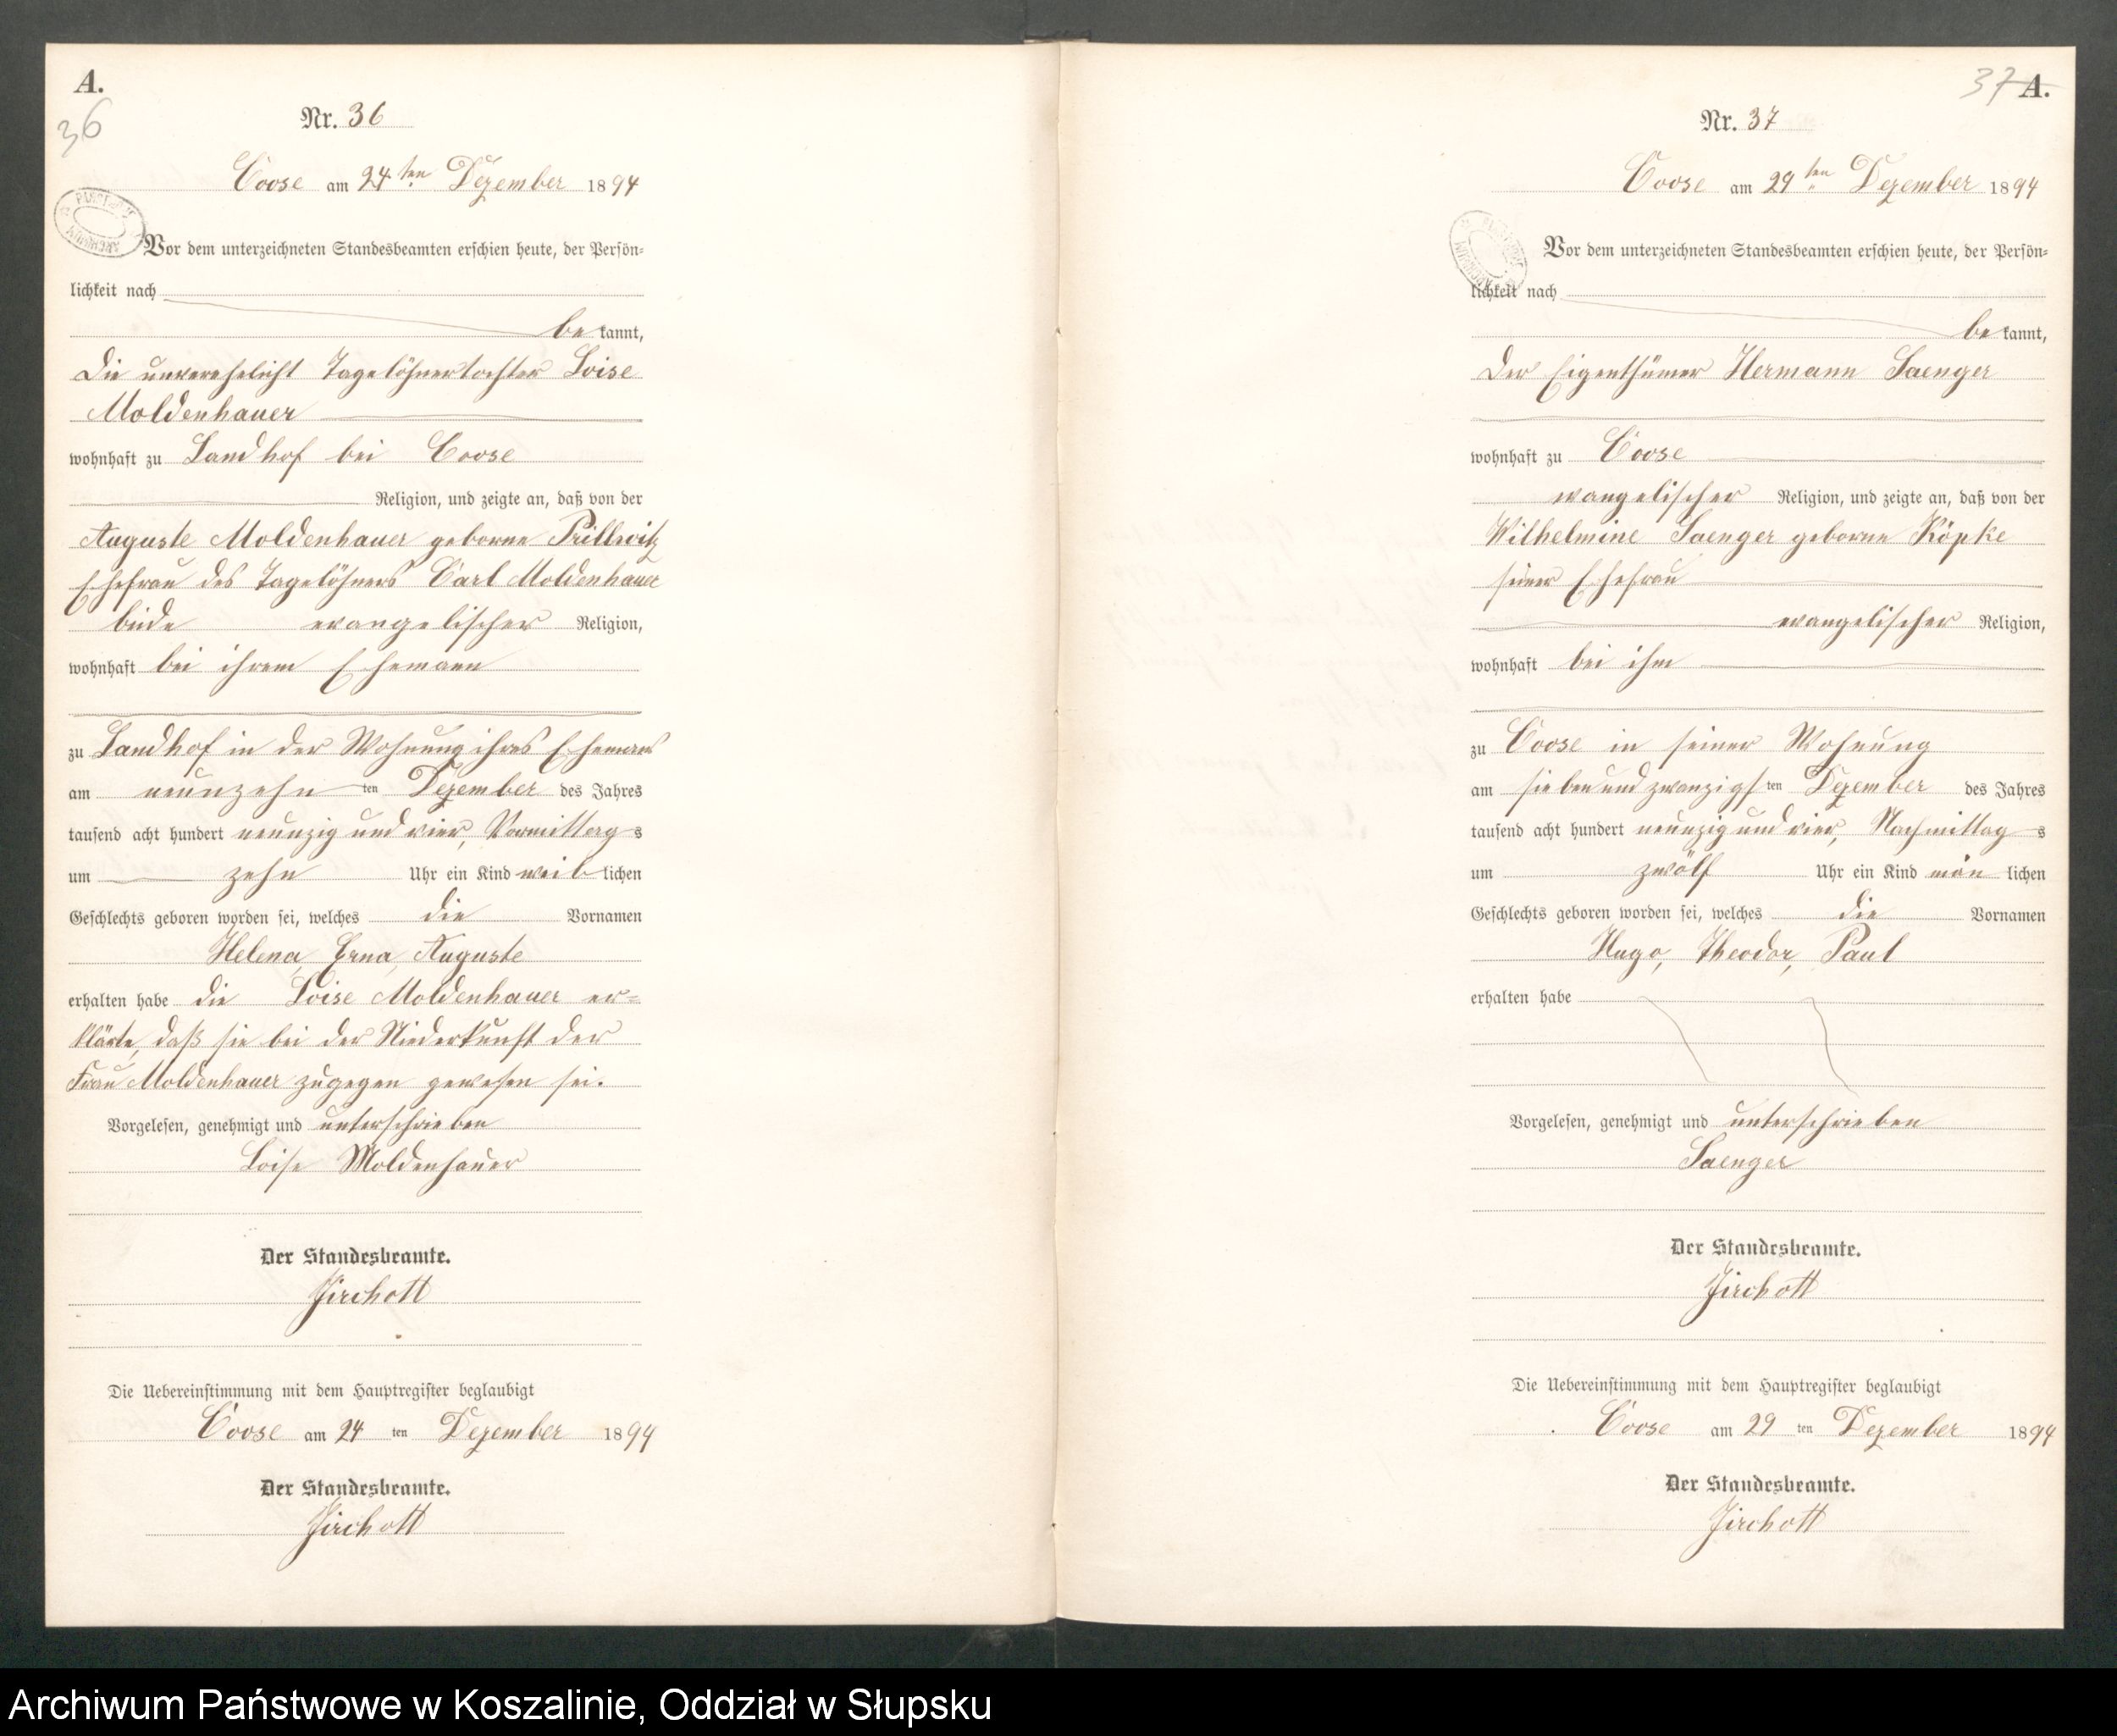 A.
36
Nr. 36
Coose am 24ten Dezember 1894
Vor dem unterzeichneten Standesbeamten erschien heute, der Persön-
lichkeit nach
be kannt,
die unverehelicht Tagelöhnertochter Loise
Moldenhauer
wohnhaft zu Landhof bei Coose
Religion, und zeigte an, daß von der
Auguste Moldenhauer geborne Prillwitz
Ehefrau des Tagelöhners Carl Moldenhauer
beide evangelischer Religion,
wohnhaft bei ihrem Ehemann
zu Landhof in der Wohnung ihres Ehemans
am neunzehn ten Dezember des Jahres
tausend acht hundert neunzig und vier, Vormittag s
um zehn Uhr ein Kind weib lichen
Geschlechts geboren worden sei, welches die Vornamen
Helena, Erna, Auguste
erhalten habe die Loise Moldenhauer er-
klärte, daß sie bei der Niederkunft der
Frau Moldenhauer zugegen gewesen sei.
Vorgelesen, genehmigt und unterschrieben
Loise Moldenhauer
Der Standesbeamte.
Jirchott
Die Uebereinstimmung mit dem Hauptregister beglaubigt
Coose am 24 ten Dezember 1894
Der Standesbeamte.
Jirchott
37 A.
Nr. 37
Coose am 29ten Dezember 1894
Vor dem unterzeichneten Standesbeamten erschien heute, der Persön-
lichkeit nach
be kannt,
der Eigenthümer Hermann Saenger
wohnhaft zu Coose
evangelischer Religion, und zeigte an, daß von der
Wilhelmine Saenger geborne Köpke
seiner Ehefrau
evangelischer Religion,
wohnhaft bei ihm
zu Coose in seiner Wohnung
am siebenundzwanzigs ten Dezember des Jahres
tausend acht hundert neunzig und vier, Nachmittag s
um zwölf Uhr ein Kind män lichen
Geschlechts geboren worden sei, welches die Vornamen
Hugo, Theodor, Paul
erhalten habe
Vorgelesen, genehmigt und unterschrieben
Saenger
Der Standesbeamte.
Jirchott
Die Uebereinstimmung mit dem Hauptregister beglaubigt
Coose am 29 ten Dezember 1894
Der Standesbeamte.
Jirchott
Archiwum Państwowe w Koszalinie, Oddział w Słupsku